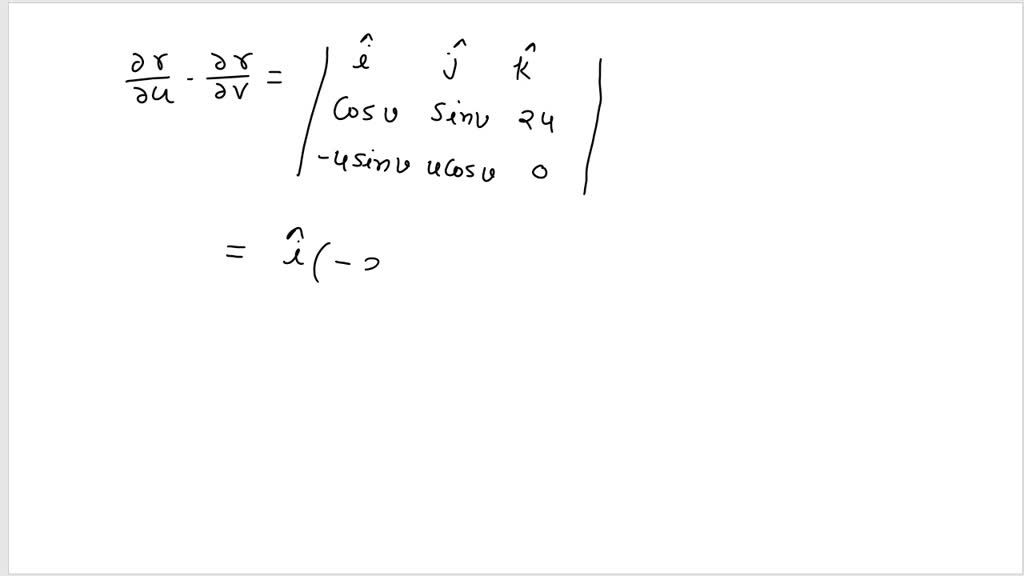 ∂r/∂u · ∂r/∂v = | î ĵ k̂ |
| cos v sin v 2u |
| -u sin v u cos v 0 |
= î(-2